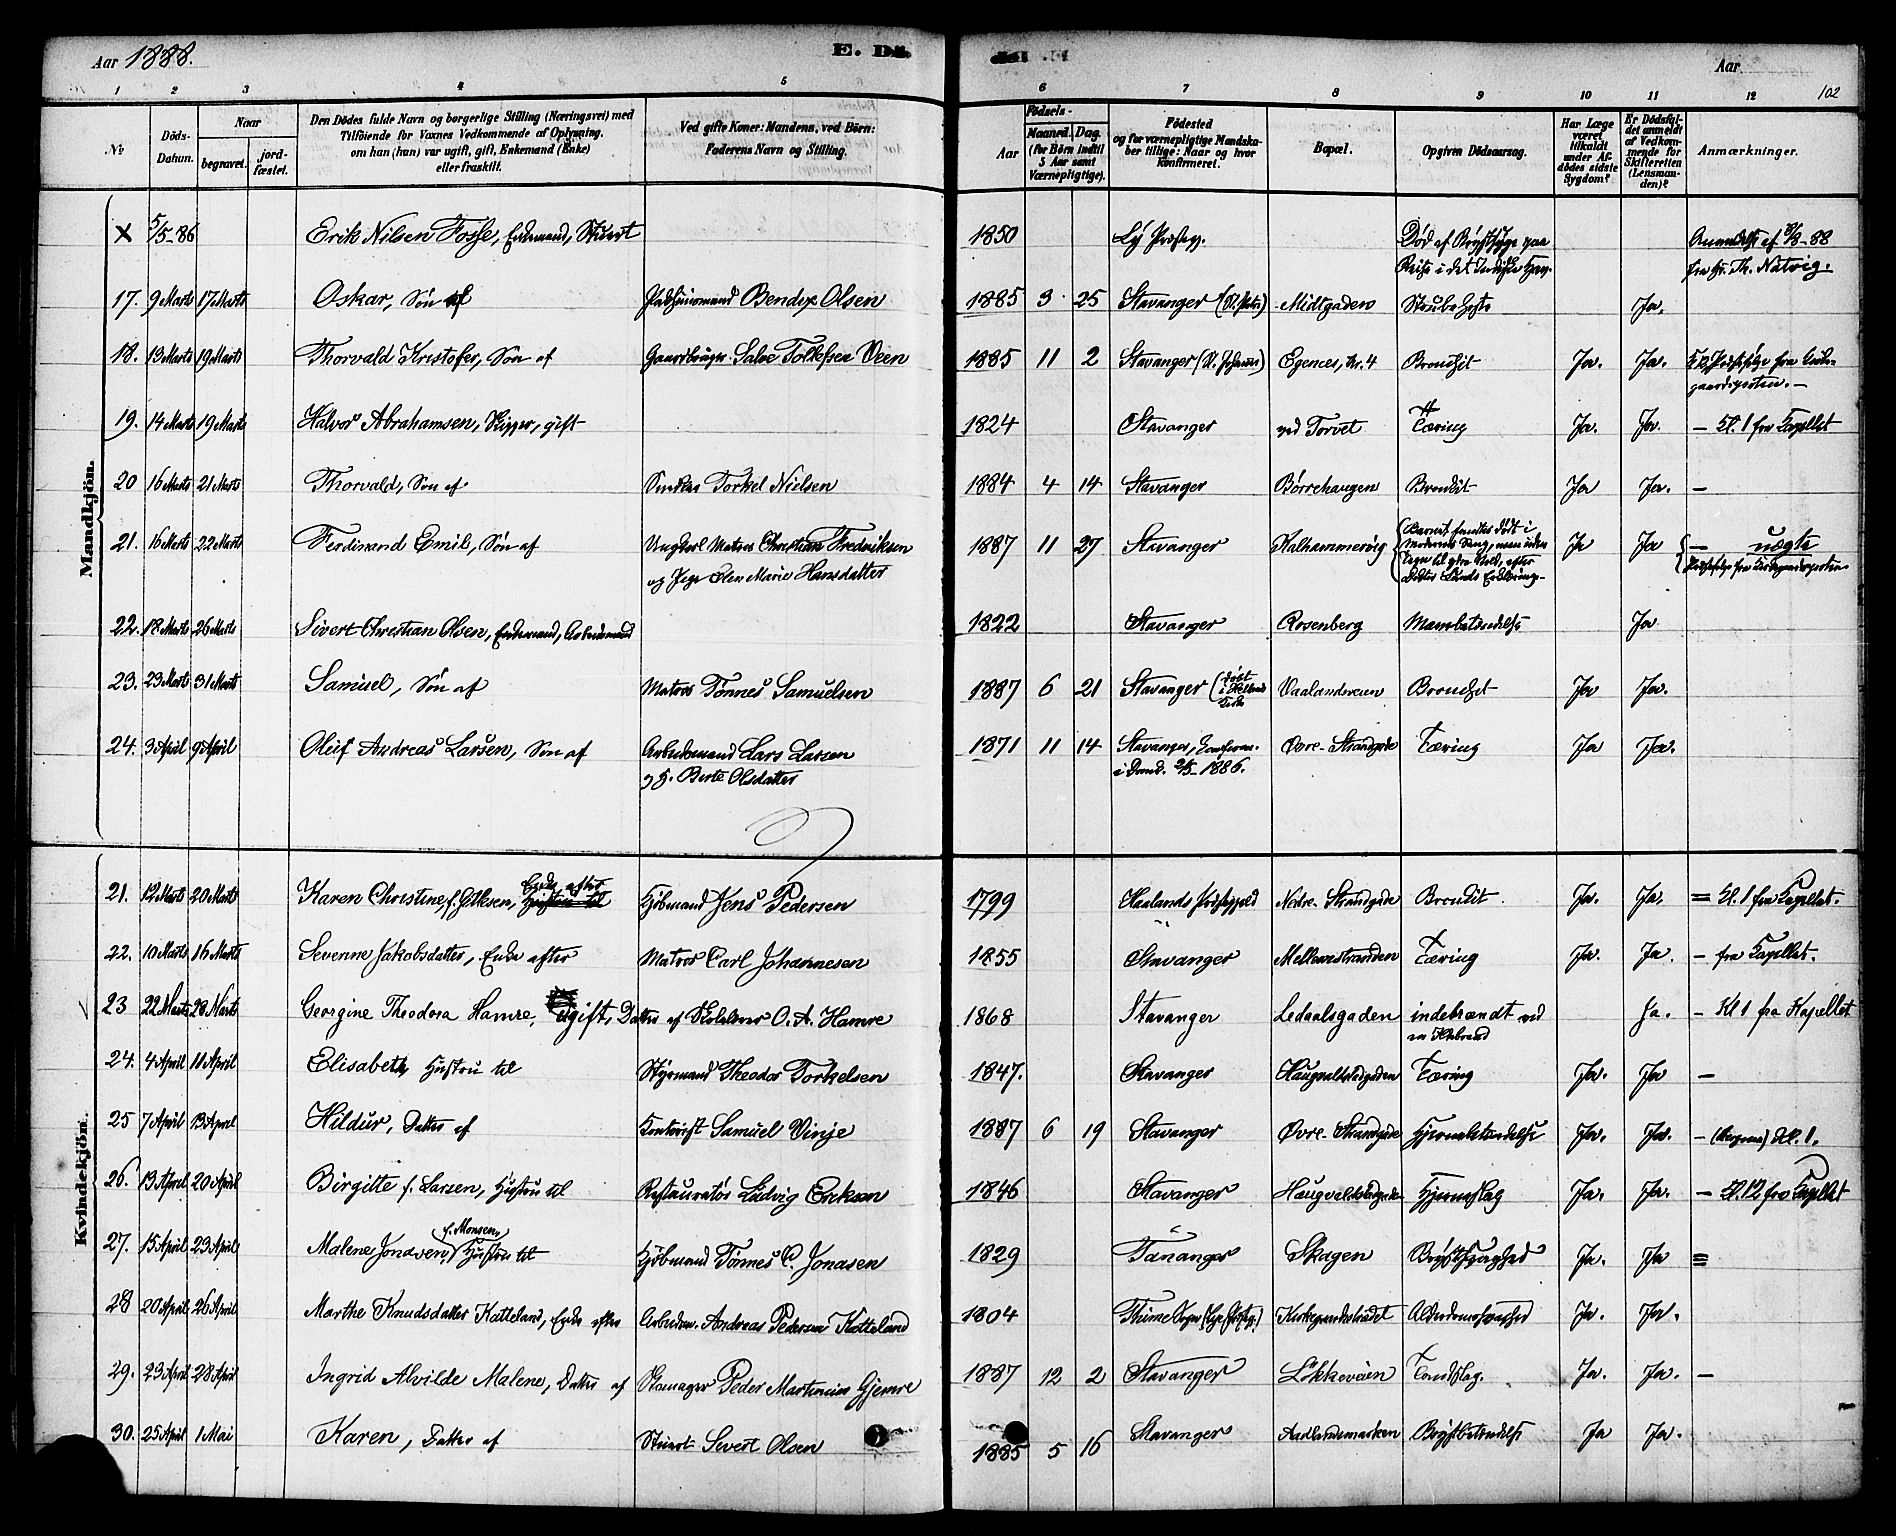 Aar 1888.
E. Dö
Aar
102
1 2 3 4 5 6 7 8 9 10 11 12
No
Döds-Datum.
Naar
begravet.
jord-fæstet.
Den Dödes fulde Navn og borgerlige Stilling (Næringsvei) med
Tilföiende for Voxnes Vedkommende af Oplysning,
om han (hun) var ugift, gift, Enkemand (Enke)
eller fraskilt.
Ved gifte Koner: Mandens, ved Börn:
Faderens Navn og Stilling.
Födsels-
Aar
Maaned. Dag.
(for Börn indtil
5 Aar samt
Værnepligtige).
Födested
og for værnepligtige Mandska-
ber tillige: Naar og hvor
konfirmeret.
Bopæl.
Opgiven Dödsaarsag.
Har Læge
været
tilkaldt
under Af-
dödes sidste
Sygdom?
Er Dödsfal-
det anmeldt
af Vedkom-
mende for
Skifteretten
(Lensman-
den)?
Anmærkninger.
Mandkjön.
X 5/5-86 Erik Nilsen Fosse, Enkemand, Stuert 1850 Ly Præstegj. Död af Brystsyge paa
Reise i det Indiske Hav. Anmeldt af 8/8-88
fra Hr. Th. Natvig.
17. 9 Marts 17 Marts Oskar, Sön af Bendix Olsen 1885 3 25 Stavanger (St. Petri) Midtgaden Strubehoste Ja.
18. 13 Marts 19 Marts Thorvald Kristofer, Sön af Gaardbruger Salve Tollefsen Veen 1885 11 2 Stavanger (St. Johannis) Egenes, Nr. 4 Bronchit Ja. Ja.
19. 14 Marts 19 Marts Halvor Abrahamsen, Skipper, gift 1824 Stavanger ved Torvet Tæring Ja. Ja. – Kl. 1 fra Kapellet
20 16 Marts 21 Marts Thorvald, Sön af Torkel Nielsen 1884 4 14 Stavanger Börrehaugen Bronchit Ja Ja. –
21. 16 Marts 22 Marts Ferdinand Emil, Sön af Ungkarl Matros Christian Fredriksen
og Pige Elen Marie Hansdatter 1887 11 27 Stavanger Kalhammervig Barnet fandtes dödt i
Moderens Seng, men uden
Tegn til ydre Vold, efter
Doktor Lunds Erklæring. Ja Ja – uægte
22. 18 Marts 26 Marts Sivert Christian Olsen, Enkemand, Arbeidsmand 1822 Stavanger Rosenberg Ja
23. 23 Marts 31 Marts Samuel, Sön af Matros Tönnes Samuelsen 1887 6 21 Stavanger (döbt
i Hetland
Kirke Vaalandsveien Bronchit Ja Ja.
24. 3 April 9 April Oluf Andreas Larsen, Sön af Arbeidsmand Lars Larsen
og H. Berte Olsdatter 1871 11 14 Stavanger, Konfirm.
i Domk. 2/5-1886. Övre-Strandgade Tæring Ja Ja.
Kvindekjön.
21. 12 Marts 20 Marts Karen Christine, f. Gilksen, Enke efter Hustru til Kjöbmand Jens Pedersen 1799 Haalands Præstegjeld Nedre-Strandgade Bronchit Ja. Ja. = Kl. 1 fra Kapellet.
22. 10 Marts 16 Marts Severine Jakobsdatter, Enke efter Matros Carl Johannesen 1855 Stavanger Mellemstranden Tæring Ja. Ja. – fra Kapellet.
23 22 Marts 28 Marts Georgine Theodora Hamre, ugift, Datter af Skolelærer O. A. Hamre 1868 Stavanger Ledaalsgaden indebrændt ved
en Ildebrand Ja. – Kl 1 fra Kapellet
24. 4 April 11 April Elisabeth, Hustru til Styrmand Theodor Torkelsen 1847. Stavanger Haugvaldstadgaden Tæring Ja. Ja –
25 7 April 13 April Hildur, Datter af Kontorist Samuel Vinje 1887 6 19 Stavanger Övre-Strandgade Hjernebetændelse Ja. Ja. – Kl. 1.
26. 13 April 20 April Birgitte f. Larsen, Hustru til Restauratör Ludvig Eriksen 1846 Stavanger Haugvaldstadgaden Hjerneslag Ja. Ja. – Kl. 12 fra Kapellet
27. 15 April 23 April Malene Jonasen, f. Monsen, Hustru til Kjöbmand Tönnes C. Jonasen 1829 Tananger Skagen Brystsvaghed Ja. Ja =
28 20 April 26 April Marthe Knudsdatter Katteland, Enke efter Arbeidsm. Andreas Pedersen Katteland 1804 Thime Sogn (Lye Præstegj.) Kirkegaardsstrædet Alderdomssvaghed Ja. Ja.
29. 23 April 28 April Ingrid Alvilde Malene, Datter af Skomager Peder Martinius Gjemre 1887 12 2 Stavanger Lökkeveien Tandslag. Ja. Ja. –
30. 25 April 1 Mai Karen, Datter af Stuert Severt Olsen 1885 5 16 Stavanger Aadlandsmarken Brystbetændelse Ja Ja.